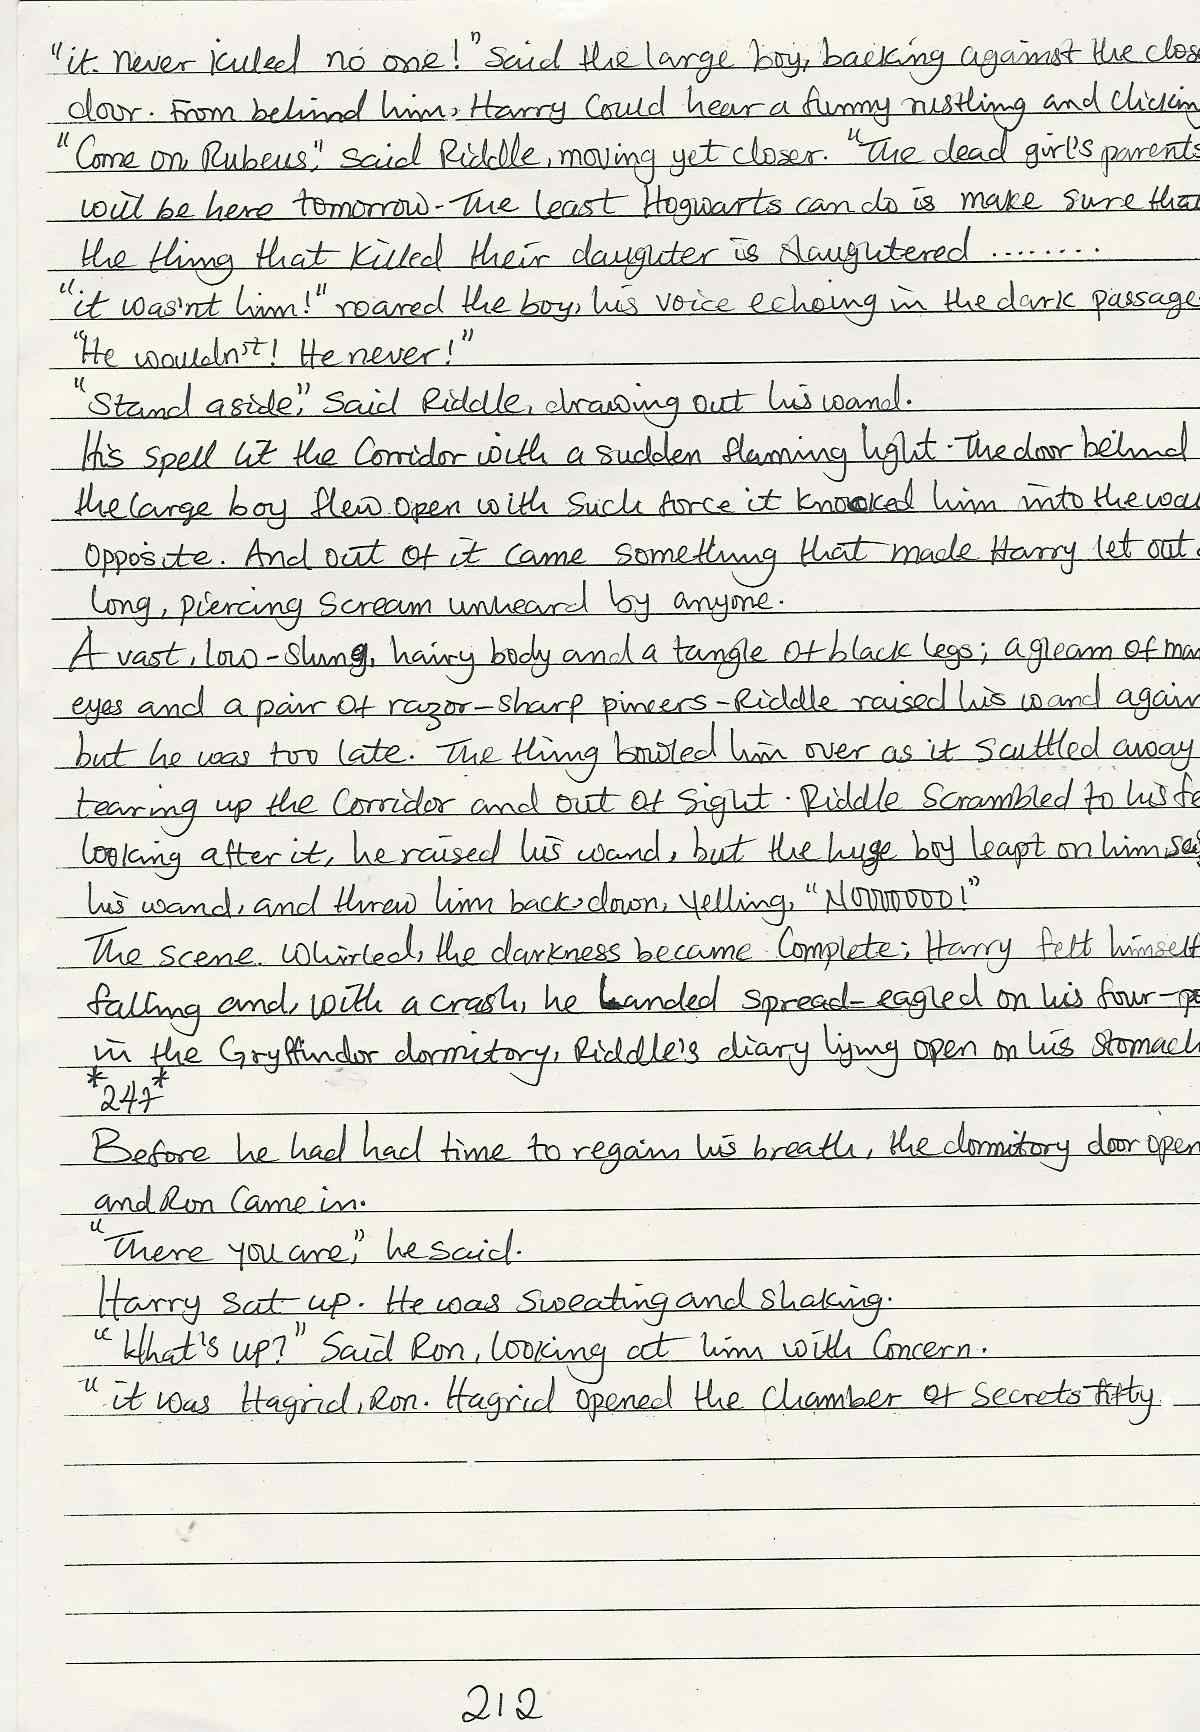 "it never killed no one!" Said the large boy, backing against the clos
door. From behind him, Harry Could hear a funny rustling and clicking
"Come on, Rubeus," Said Riddle, moving yet closer. "The dead girl's parents
will be here tomorrow. The least Hogwarts can do is make sure that
the thing that killed their daughter is slaughtered ........
"it was'nt him!" roared the boy, his voice echoing in the dark passage.
"He wouldn't! He never!"
"Stand aside," Said Riddle, drawing out his wand.
His spell lit the Corridor with a sudden flaming light. The door behind
the large boy flew open with Such force it knocked him into the wall
opposite. And out of it came something that made Harry let out a
long, piercing scream unheard by anyone.
A vast, low-slung, hairy body and a tangle of black legs; a gleam of man
eyes and a pair of razor-sharp pincers-Riddle raised his wand again
but he was too late. The thing bowled him over as it scuttled away
tearing up the Corridor and out of sight. Riddle Scrambled to his fe
looking after it, he raised his wand, but the huge boy leapt on him, sei
his wand, and threw him back down, yelling, "NOOOOOOO!"
The scene whirled, the darkness became Complete; Harry felt himself
falling and, with a crash, he Landed spread-eagled on his four-po
in the Gryffindor dormitory, Riddle's diary lying open on his stomach
*247*
Before he had had time to regain his breath, the dormitory door open
and Ron Came in.
"There you are," he said.
Harry sat up. He was sweating and shaking.
"What's up?" Said Ron, looking at him with Concern.
"it was Hagrid, Ron. Hagrid opened the Chamber of Secrets fifty
212